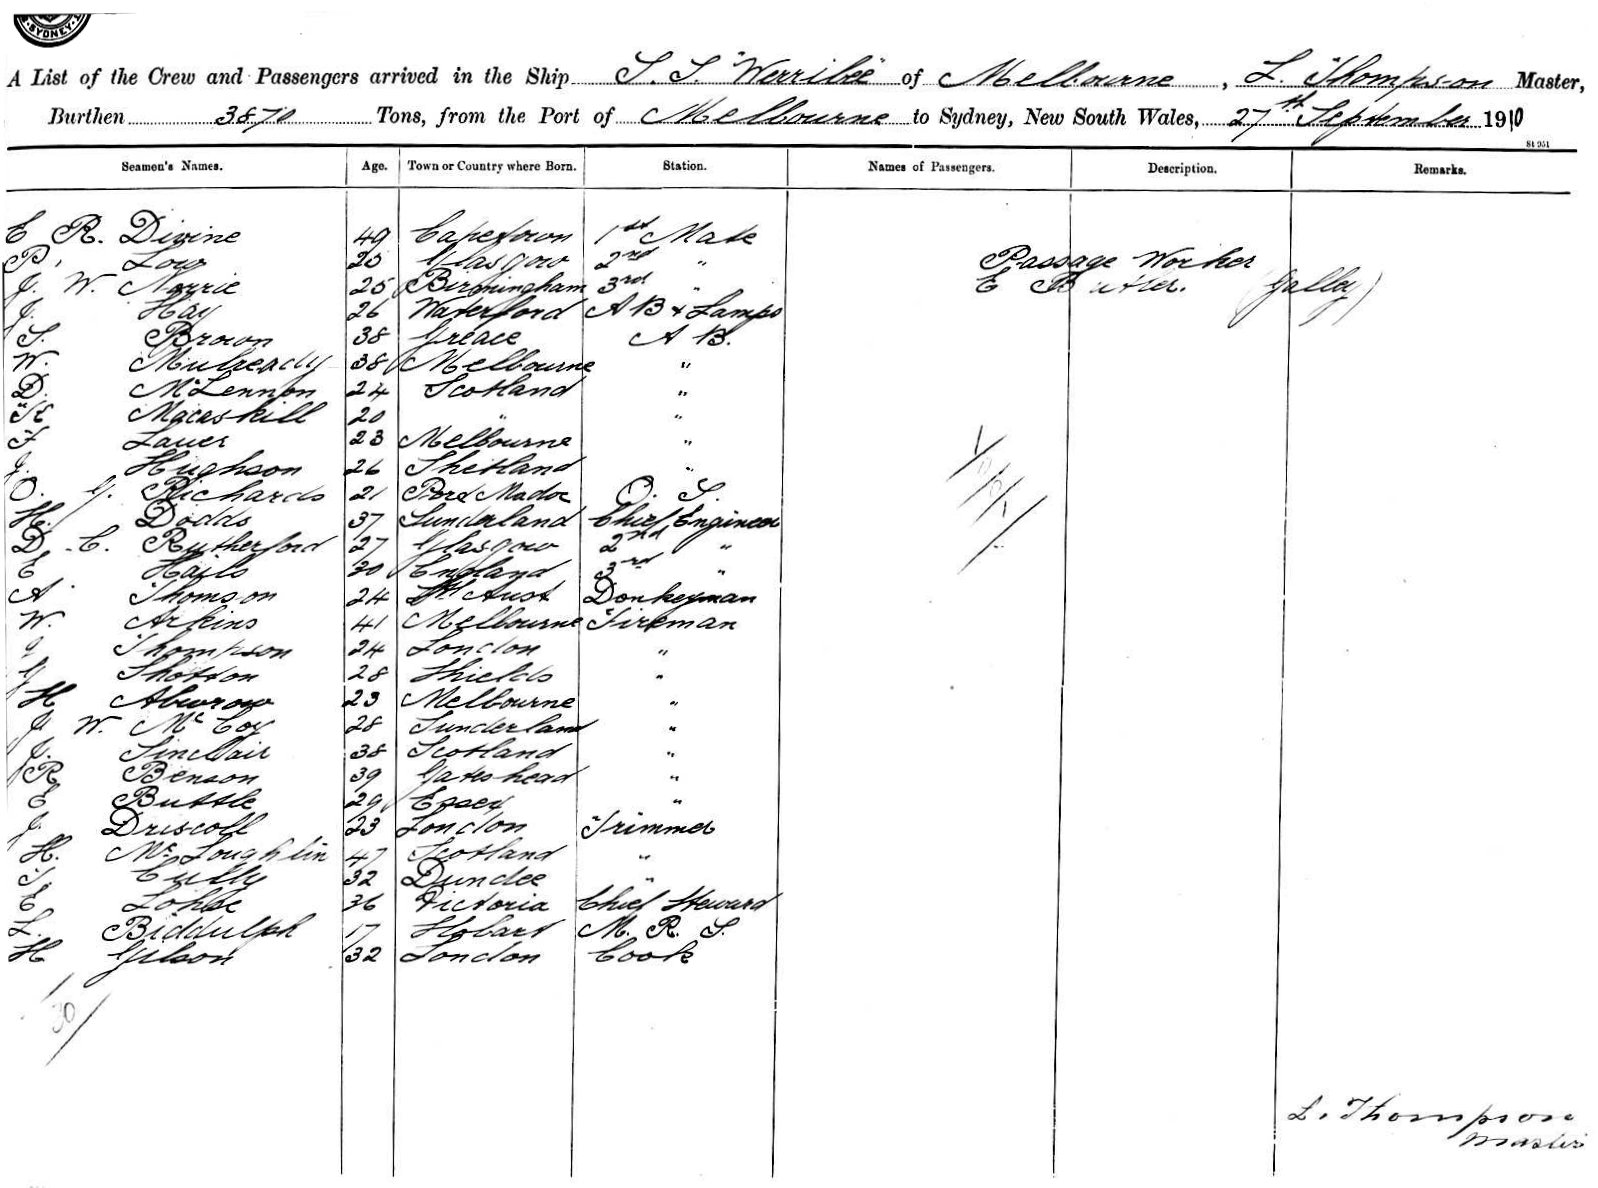 SYDNEY
A List of the Crew and Passengers arrived in the Ship S. S. "Werribee" of Melbourne, L. Thompson Master,
Burthen 3870 Tons, from the Port of Melbourne to Sydney, New South Wales, 27th September 1910
St 951
Seamen's Names. Age. Town or Country where Born. Station. Names of Passengers. Description. Remarks.
E R. Divine 49 Capetown 1st Mate
P. Low 25 Glasgow 2nd " Passage Worker
J. W. Norrie 25 Birmingham 3rd " E Butler. (Galley)
J. Hay 26 Waterford A B & Lamps
S. Brown 38 Greace A B.
W. Mulready 38 Melbourne "
D. McLennon 24 Scotland "
Macaskill 20 " "
F Lauer 23 Melbourne "
J. Hughson 26 Shetland "
O. G. Richards 21 Port Madoc O. S.
H. Dodds 37 Sunderland Chief Engineer
D. C. Rutherford 27 Glasgow 2nd "
E Hails 30 England 3rd "
A. Thomson 24 Sth Aust Donkeyman
W. Arkins 41 Melbourne Fireman
Thompson 24 London "
G Shotton 28 Shields "
H 23 Melbourne "
J. W. McCoy 28 Sunderland "
J. Sinclair 38 Scotland "
J R Benson 39 Gateshead "
E Buttle 29 Essex "
J. Driscoll 23 London Trimmer
H. McLoughlin 47 Scotland "
T. Cully 32 Dundee "
E Lohse 36 Victoria Chief Steward
L. Biddulph 17 Hobart M. R. S.
H Gilson 32 London Cook
30
L. Thompson
Master